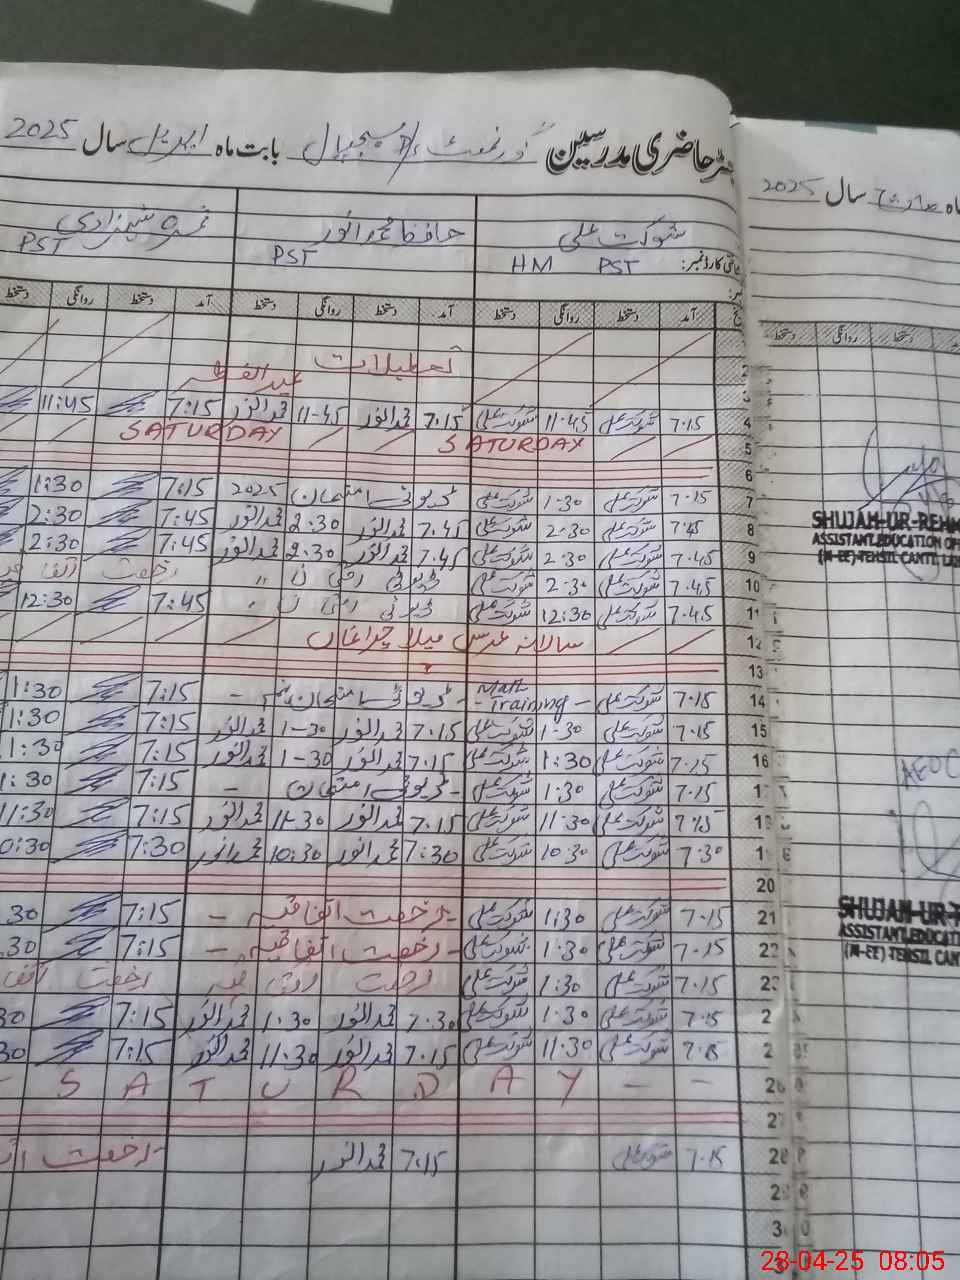 رجسٹر حاضری مدرسین گورنمنٹ P/S مسجپال بابت ماہ اپریل سال 2025
شوکت علی حافظ محمد انور نمرہ شہزادی
HM PST PST PST
آمد دستخط روانگی دستخط آمد دستخط روانگی دستخط آمد دستخط روانگی دستخط
تعطیلات
عید الفطر
4 7.15 شوکت علی 11.45 شوکت علی 7.15 محمد انور 11-45 محمد انور 7:15 11:45
5 SATURDAY SATURDAY
6
7 7.15 شوکت علی 1.30 شوکت علی ڈیوٹی امتحان 2025 7:15 1:30
8 7.45 شوکت علی 2.30 شوکت علی 7.45 محمد انور 2.30 محمد انور 7:45 2:30
9 7.45 شوکت علی 2.30 شوکت علی 7.45 محمد انور 2.30 محمد انور 7:45 2:30
10 7.45 شوکت علی 2.30 شوکت علی ڈیوٹی " رخصت
11 7.45 شوکت علی 12.30 شوکت علی ڈیوٹی " 7:45 12:30
12 سالانہ عرس میلا چراغاں
13
14 7.15 شوکت علی - Math Training - ڈیوٹی امتحان - 7:15 1:30
15 7.15 شوکت علی 1-30 شوکت علی 7.15 محمد انور 1-30 محمد انور 7:15 1:30
16 7.15 شوکت علی 1:30 شوکت علی 7.15 محمد انور 1-30 محمد انور 7:15 1:30
7.15 شوکت علی 1:30 شوکت علی - ڈیوٹی امتحان - 7:15 1:30
7.15 شوکت علی 11.30 شوکت علی 7.15 محمد انور 11.30 محمد انور 7:15 11:30
7.30 شوکت علی 10.30 شوکت علی 7:30 محمد انور 10:30 محمد انور 7:30 0:30
20
21 7.15 شوکت علی 1:30 شوکت علی - رخصت اتفاقیہ - 7:15 30
22 7.15 شوکت علی 1.30 شوکت علی - رخصت اتفاقیہ - 7:15 30
7.15 شوکت علی 1:30 شوکت علی رخصت اتفاقیہ رخصت
7.15 شوکت علی 1.30 شوکت علی 7.30 محمد انور 1.30 محمد انور 7:15 30
7.15 شوکت علی 11.30 شوکت علی 7.15 محمد انور 11.30 محمد انور 7:15 30
26 - - SATURDAY -
27
28 7.15 شوکت علی 7.15 محمد انور - رخصت
سال 2025
دستخط روانگی دستخط
SHUJAH-UR-REHM
ASSISTANT EDUCATION OF
(M-EE) TEHSIL CANTT. LA
AEO
SHUJAH-UR-R
ASSISTANT EDUCATI
(M-EE) TEHSIL CANT
28-04-25 08:05